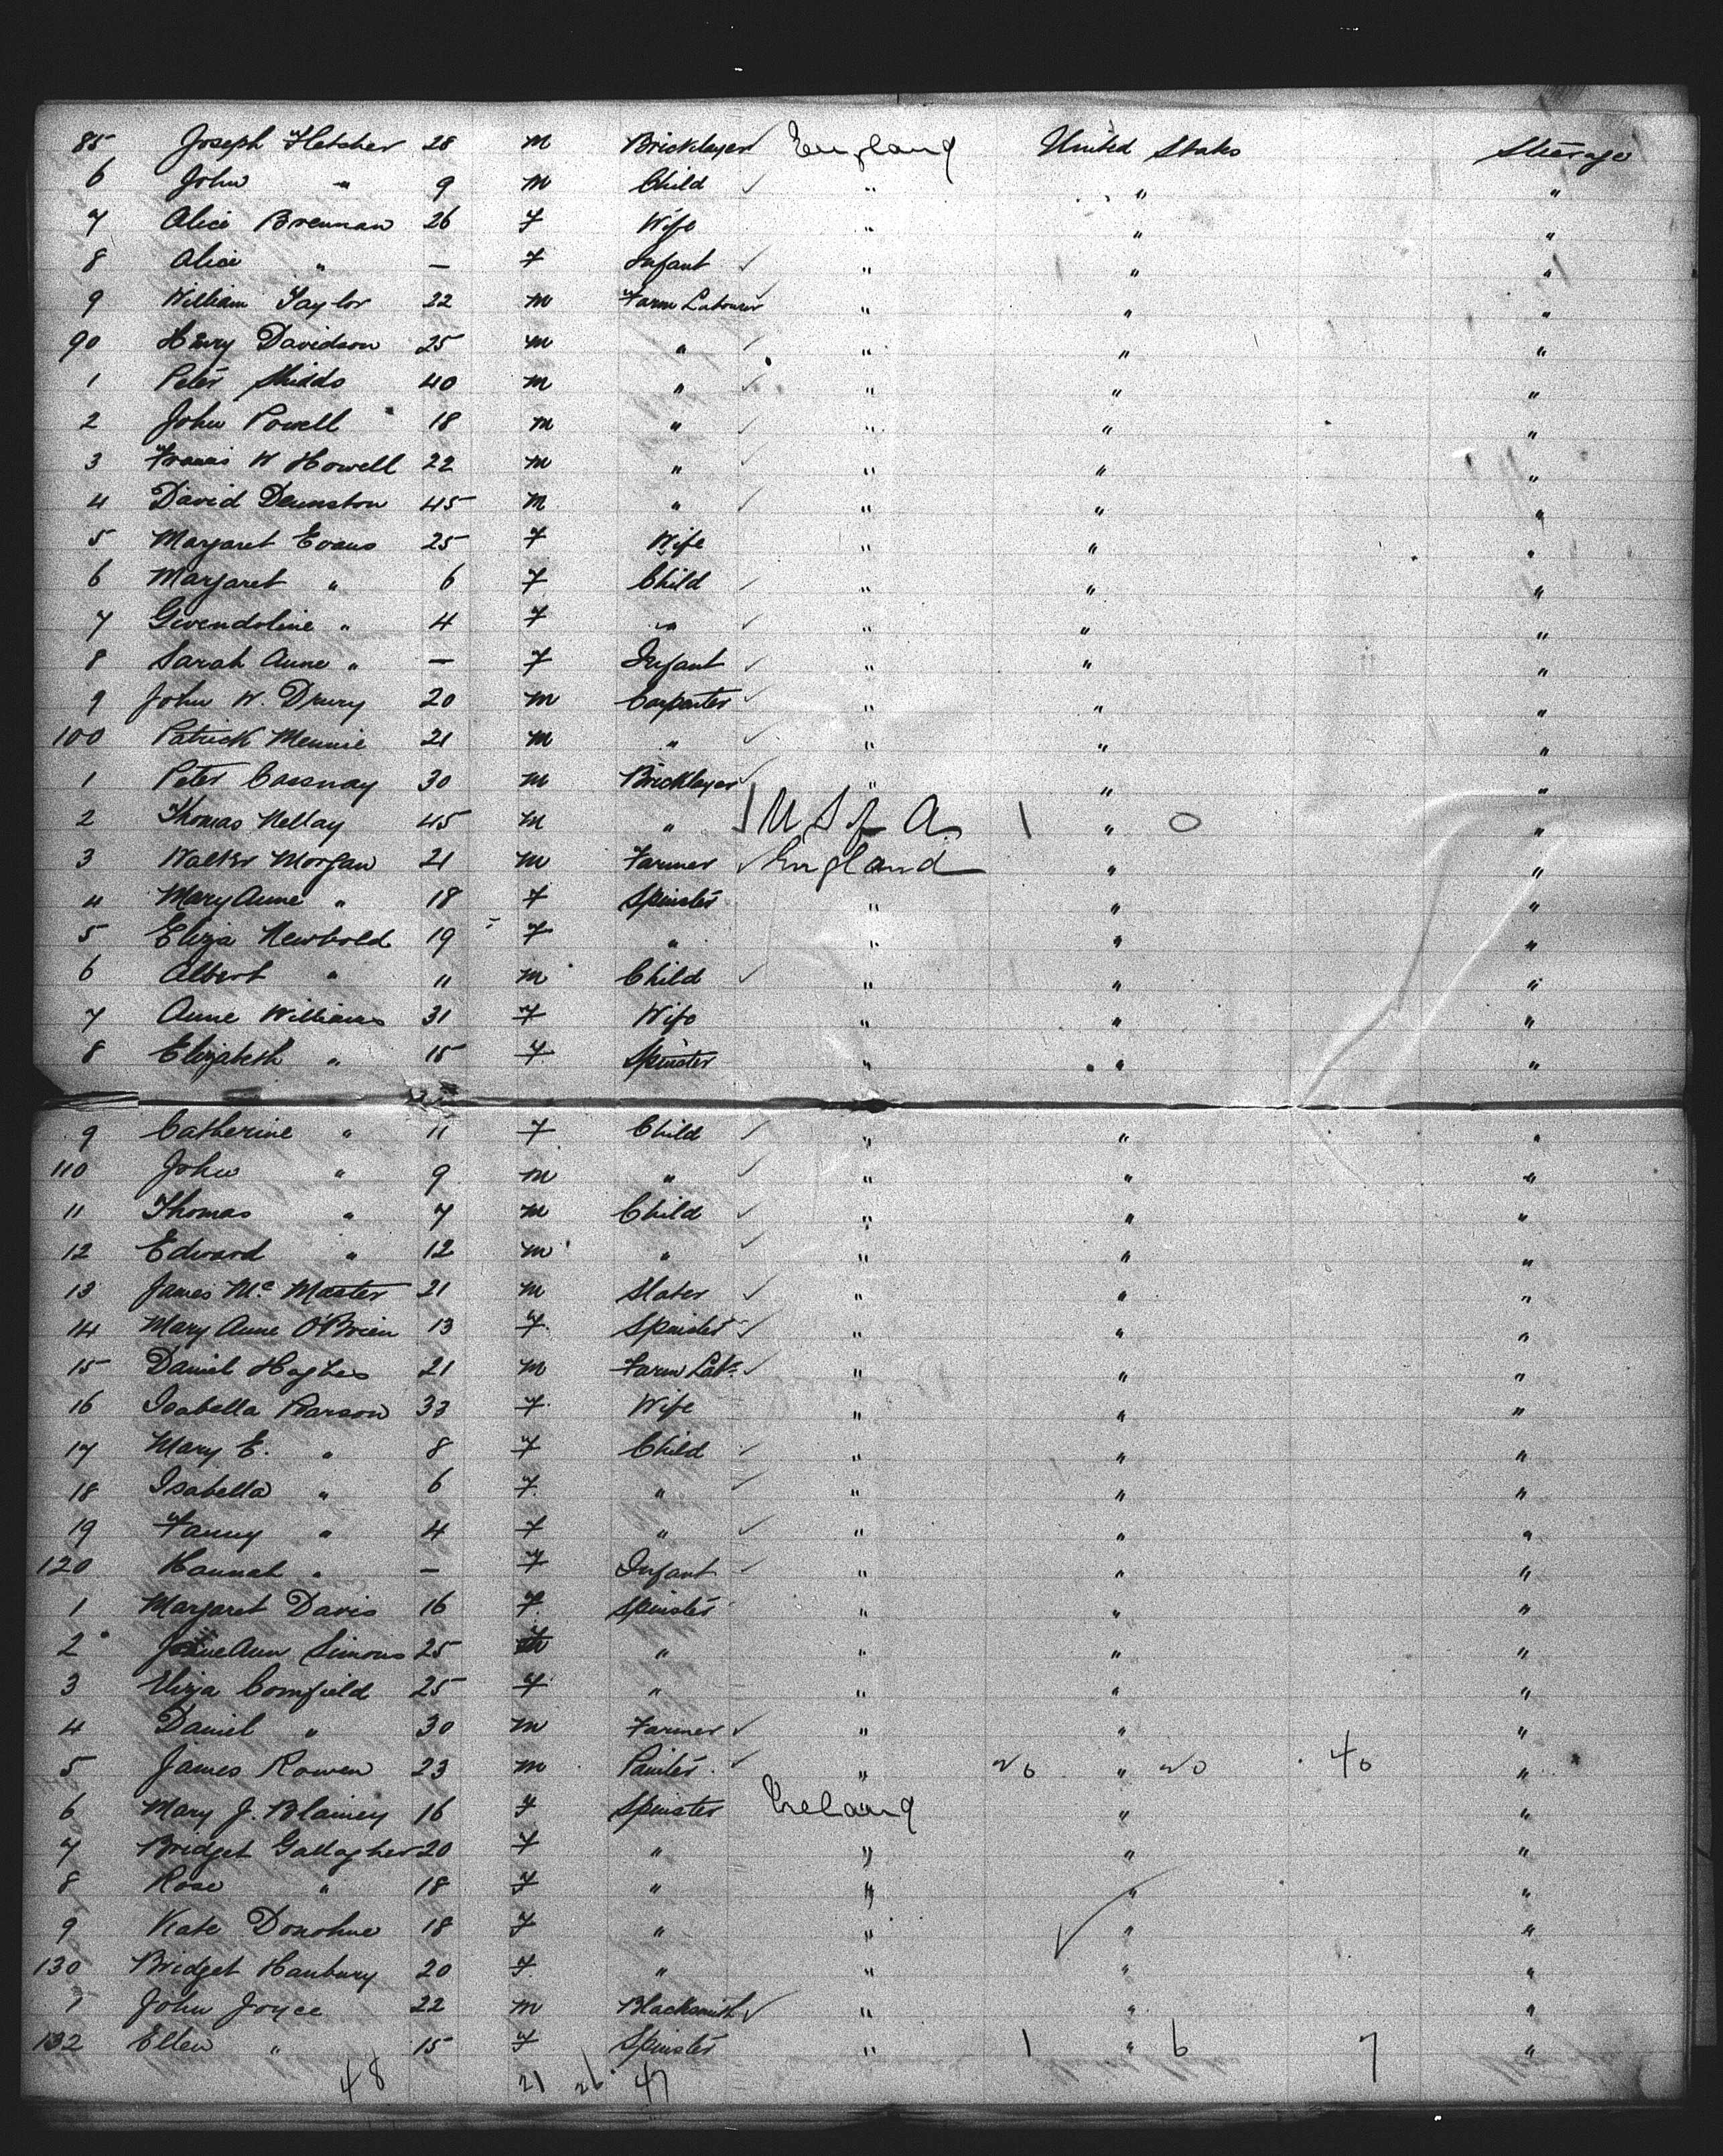 85 Joseph Fletcher 28 m Bricklayer England United States Steerage
6 John " 9 m Child " " "
7 Alice Brennan 26 F Wife " " "
8 Alice " — F Infant " " "
9 William Taylor 22 m Farm Labourer " " "
90 Henry Davidson 25 m " " " "
1 Peter 40 m " " " "
2 John Powell 18 m " " " "
3 Francis W Howell 22 m " " " "
4 David 45 m " " " "
5 Margaret Evans 25 F Wife " " "
6 Margaret " 6 F Child " " "
7 Gwendoline " 4 F " " " "
8 Sarah Anne " — F Infant " " "
9 John W. Drury 20 m Carpenter " " "
100 Patrick 21 m " " " "
1 Peter 30 m Bricklayer " " "
2 Thomas 45 m " U S of A 1 " 0 "
3 Walter Morgan 21 m Farmer England " "
4 Mary Anne " 18 F Spinster " " "
5 Eliza Newbold 19 F " " " "
6 Albert " 11 m Child " " "
7 Anne Williams 31 F Wife " " "
8 Elizabeth " 15 F Spinster " " "
9 Catherine " 11 F Child " " "
110 John " 9 m " " " "
11 Thomas " 7 m Child " " "
12 Edward " 12 m " " " "
13 James Mc Master 21 m Slater " " "
14 Mary Anne O'Brien 13 F Spinster " " "
15 Daniel Hughes 21 m Farm Labr " " "
16 Isabella Pearson 33 F Wife " " "
17 Mary E. " 8 F Child " " "
18 Isabella " 6 F " " " "
19 Fanny " 4 F " " " "
120 Hannah " — F Infant " " "
1 Margaret Davis 16 F Spinster " " "
2 Ann Simons 25 " " " "
3 Eliza Cornfield 25 F " " " "
4 Daniel " 30 m Farmer " " "
5 James Rowen 23 m Painter " 20 " 20 40 "
6 Mary J. Blainey 16 F Spinster Ireland " "
7 Bridget Gallagher 20 F " " " "
8 Rose " 18 F " " " "
9 Kate Donohue 18 F " " " "
130 Bridget Hanbury 20 F " " " "
1 John Joyce 22 m Blacksmith " " "
132 Ellen " 15 F Spinster " 1 " 6 7 "
48 21 26 47